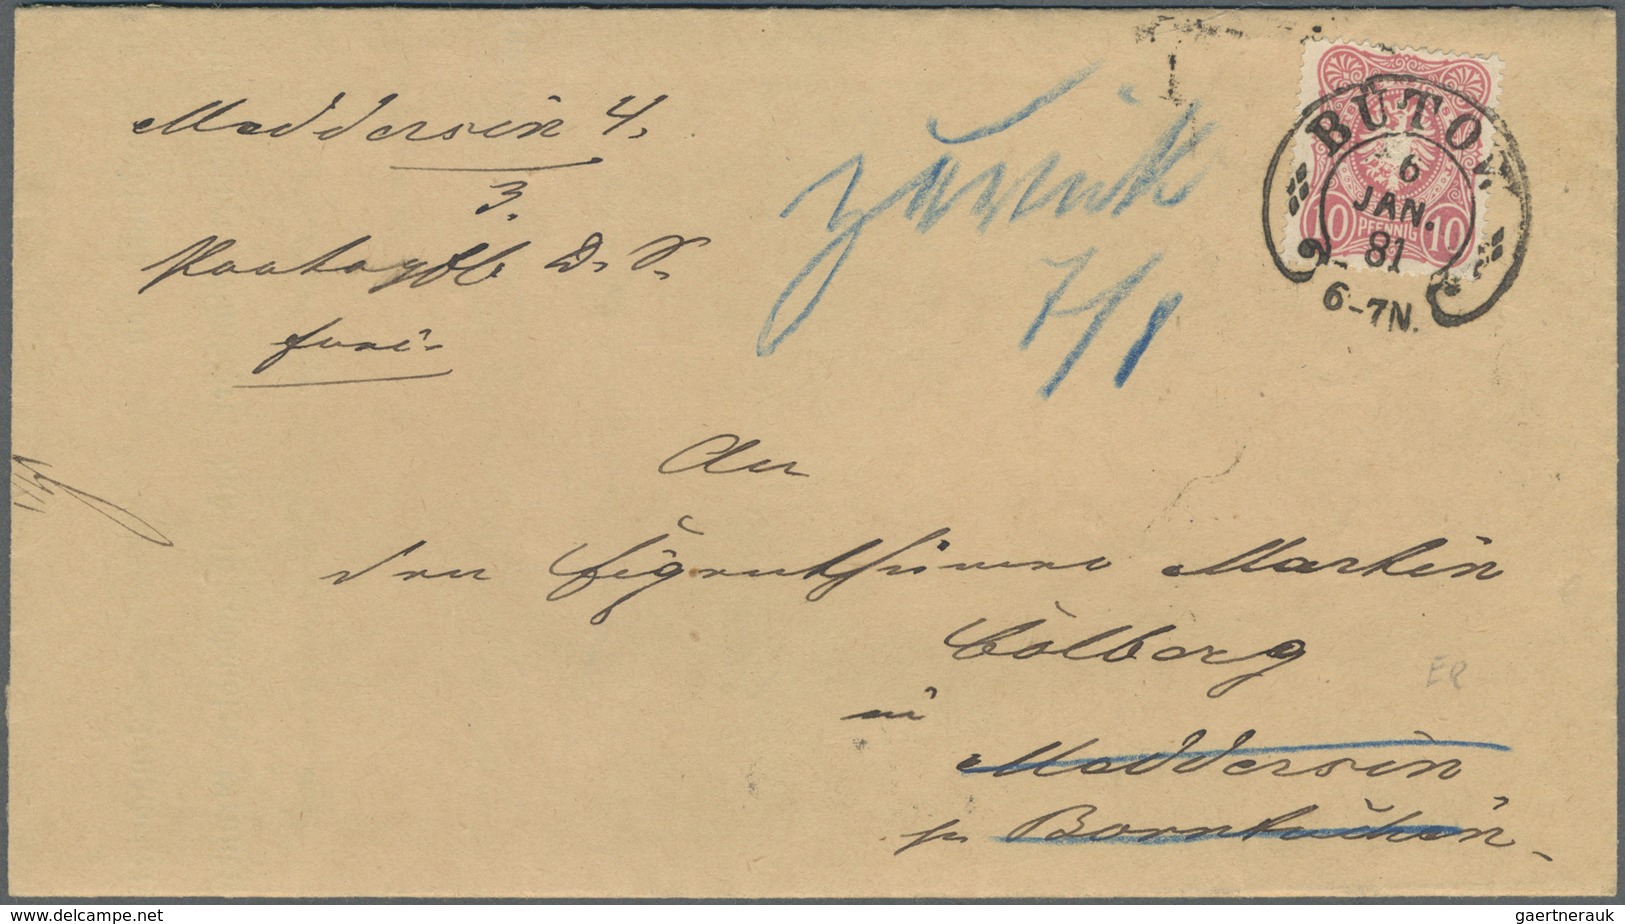 Meddersin 4.
3.
D. S.
zurück
7/1
BÜTOW
6
JAN.
81
6-7N.
10 PFENNIG 10
An
den Eigenthümer Martin
Colberg
in
Meddersin
pr Borntuchen.
ER
www.delcampe.net
gaertnerauk